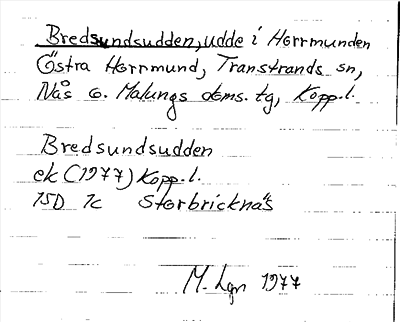 Bredsundsudden, udde i Horrmunden
Östra Horrmund, Transtrands sn,
Nås o. Malungs doms. tg, Kopp. l.
Bredsundsudden
ek (1977) Kopp. l.
15D 1c Storbricknäs
M. Lgn 1977